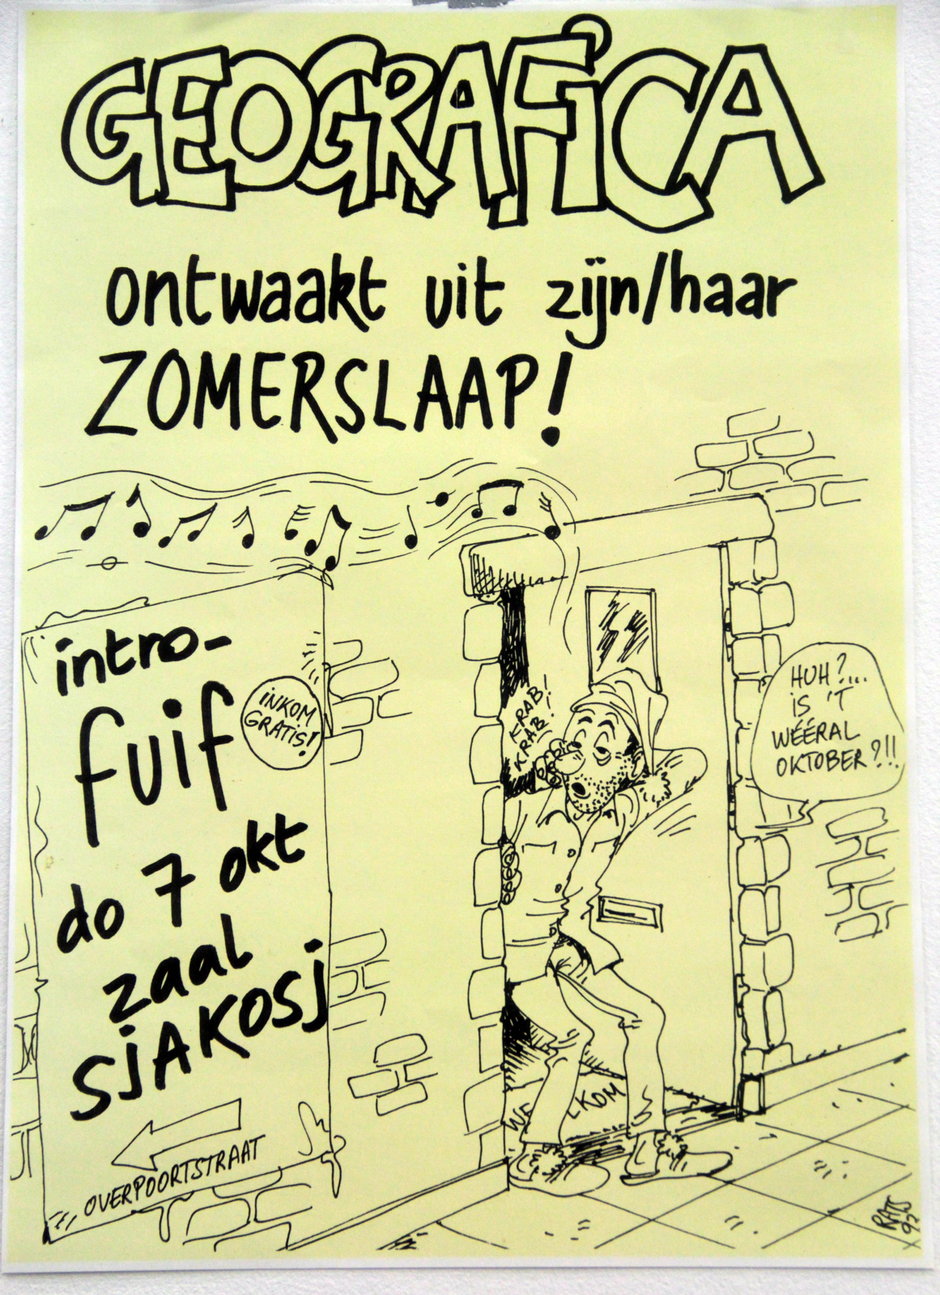 GEOGRAFiCA
ontwaakt uit zijn/haar
ZOMERSLAAP!
intro-
fuif
iNKOM
GRATiS!
do 7 okt
zaal
SjAKOSj
OVERPOORTSTRAAT
KRAB!
KRAB!
HUH?....
iS 'T
WÉÉRAL
OKTOBER?!!
WE LKOM
RATS